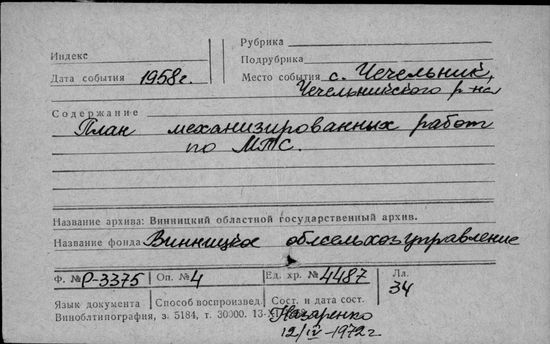 Индекс
Рубрика
Подрубрика
Дата события 1958 г.
Место события с. Чечельник,
Чечельнийского р-на
Содержание
План механизированных работ
по МТС.
Название архива: Винницкий областной государственный архив.
Название фонда Винницкое облсельхозуправление
Ф. № Р-3375 Оп. № 4 Ед. хр. № 4487 Лл. 34
Язык документа Способ воспроизвед. Сост. и дата сост.
Виноблтипография, з. 5184, т. 30000. 13-XI
Назаренко
12/IV-1972 г